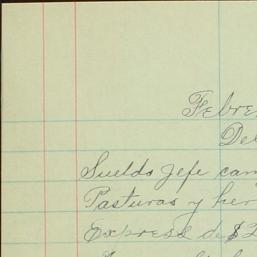 Febre
De
Sueldo Jefe cam
Pasturas y her
Express de $2